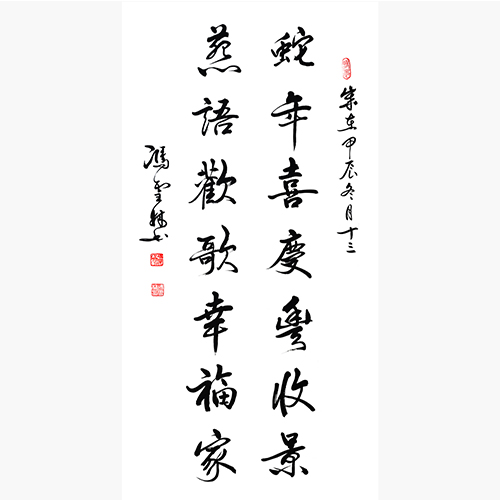 歲在甲辰冬月十三
蛇年喜慶豐收景
燕語歡歌幸福家
馮书